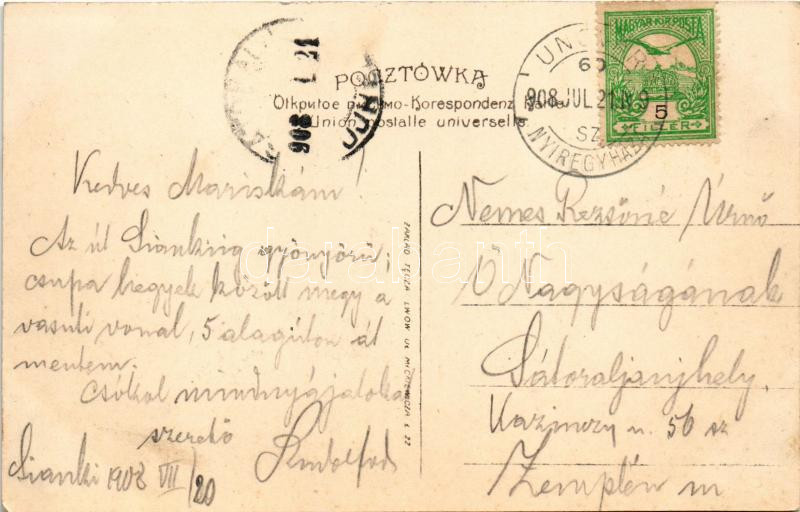 POCZTÓWKA
Открытое письмо-Korespondenz Karte
Union postalle universelle
908 JUL 21
60
SZ.
NYIREGYHÁ
MAGYAR KIR POSTA
5
FILLÉR
908
21
Kedves Mariskám!
Az út Siankiig gyönyörű,
csupa hegyek között megy a
vasuti vonal, 5 alagúton át
mentem.
Csókol mindnyájatokat
szerető
Rudolfod
Sianki 1908 VII/20
ZAKŁAD TĘCZA LWÓW UL
Nemes Rezsőné Úrnő
Ő Nagyságának
Sátoraljaujhely.
Kazinczy u. 56 sz
Zemplén m
darabanth